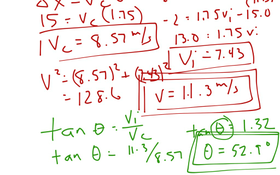 Δx = Vc
15 = Vc (1.75)
Vc = 8.57 m/s
-2 = 1.75vi - 15.0
13.0 = 1.75 v
Vi = 7.43
V² = (8.57)² + (7.43)²
= 128.6
V = 11.3 m/s
tan θ = Vi/Vc
tan θ = 11.3/8.57
tan θ = 1.32
θ = 52.8°